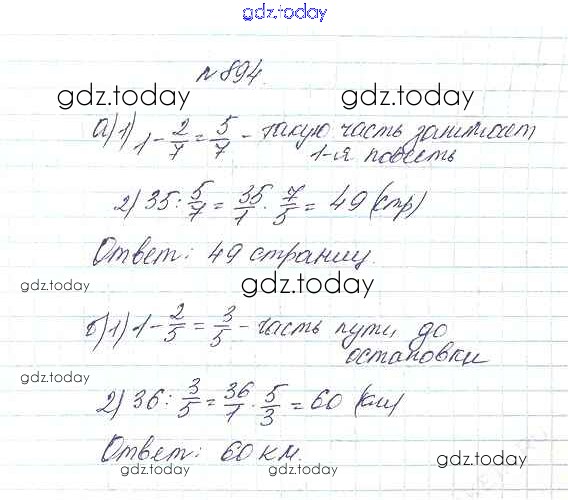 gdz.today
№894.
gdz.today gdz.today
а) 1) 1 - 2/7 = 5/7 - такую часть занимает
1-я повесть
2) 35 : 5/7 = 35/1 · 7/5 = 49 (стр)
Ответ: 49 страниц.
gdz.today gdz.today
б) 1) 1 - 2/5 = 3/5 - часть пути до
остановки
gdz.today
2) 36 : 3/5 = 36/1 · 5/3 = 60 (км)
Ответ: 60 км.
gdz.today gdz.today